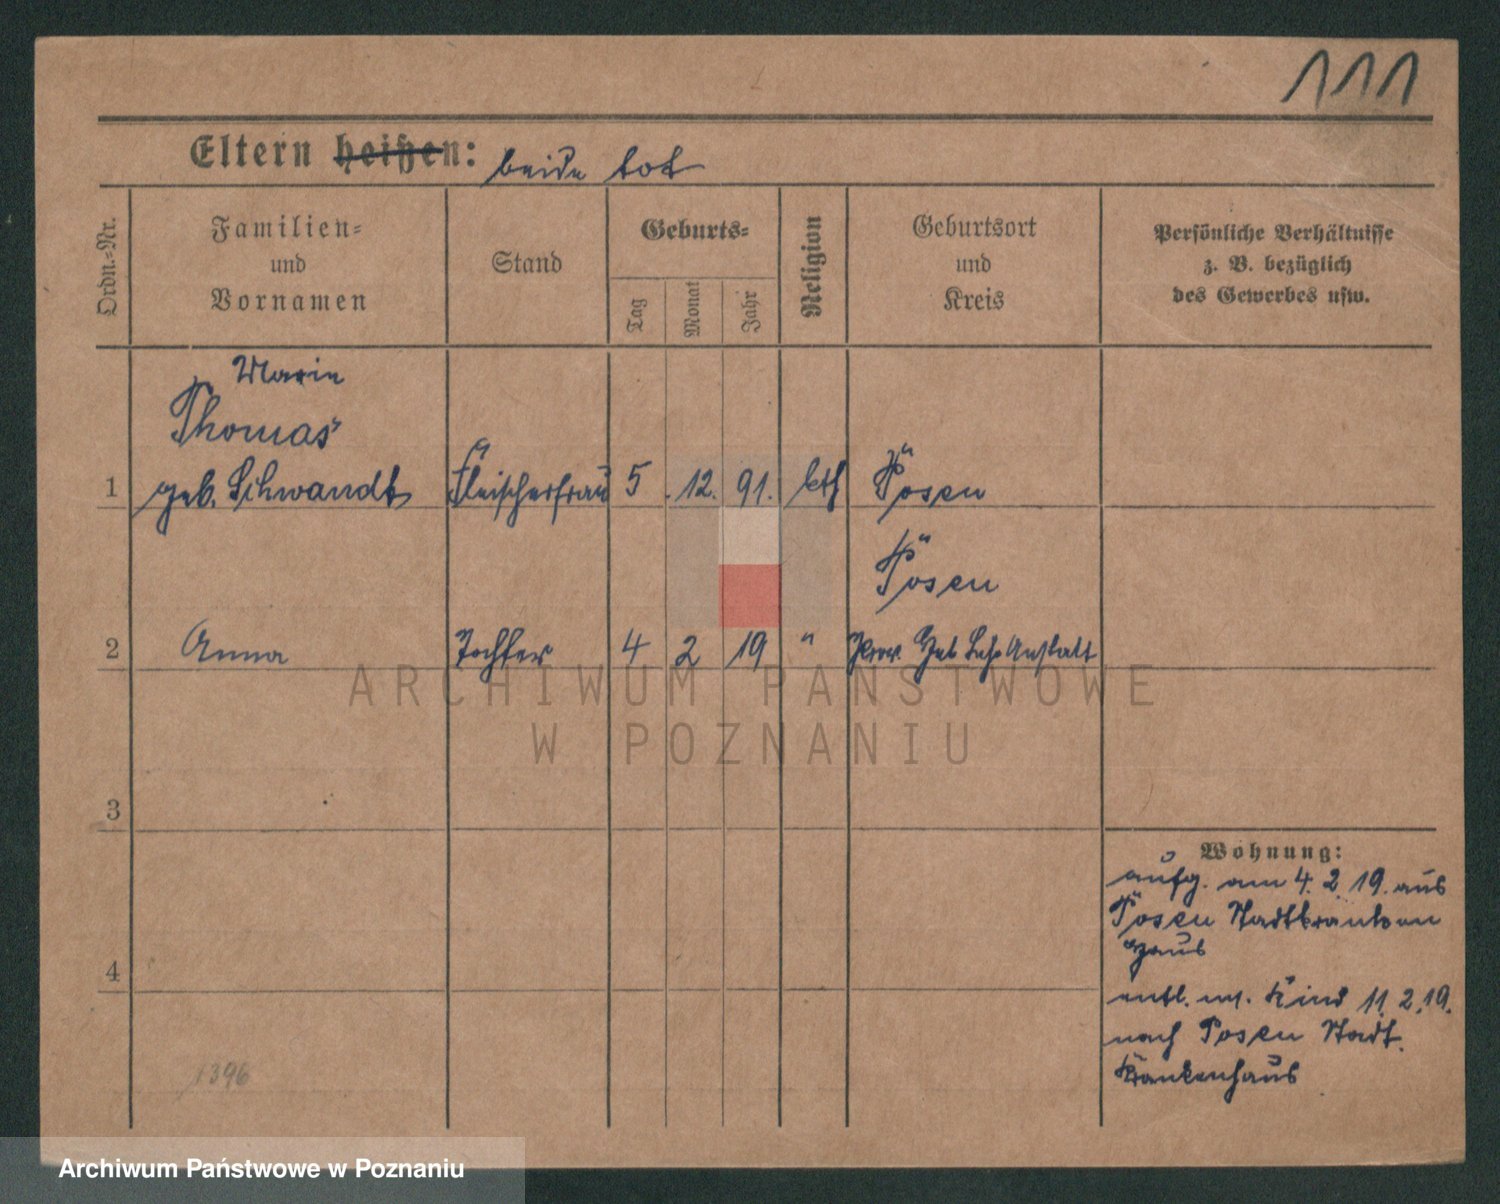 111
Eltern heißen: beide tot
Ordn.-Nr.
Familien-
und
Vornamen
Stand
Geburts-
Tag
Monat
Jahr
Religion
Geburtsort
und
Kreis
Persönliche Verhältnisse
z. B. bezüglich
des Gewerbes usw.
Marie
Thomas
1 geb. Schwandt Fleischerfrau 5. 12. 91. kth Posen
Posen
2 Anna Tochter 4 2 19 " Prov. Heb Lehr Anstalt
3
4
Wohnung:
aufg. am 4. 2. 19. aus
Posen Stadtkranken
haus
entl. m. Kind 11. 2. 19.
nach Posen Stadt.
Krankenhaus
1396
ARCHIWUM PAŃSTWOWE
W POZNANIU
Archiwum Państwowe w Poznaniu